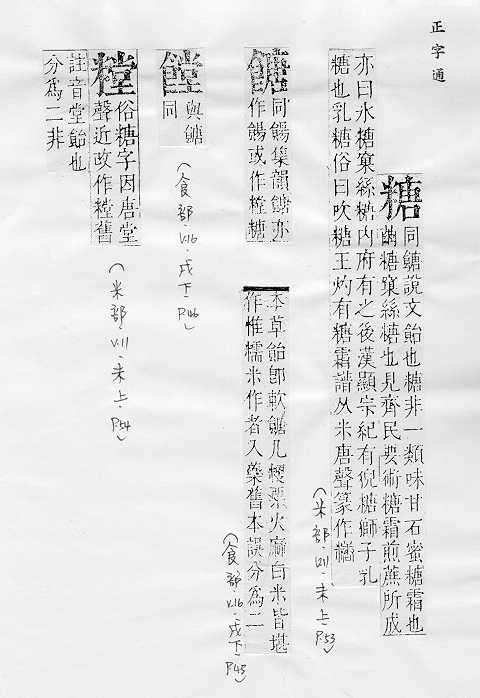 正字通
糖
同餹說文飴也糖非一類味甘石蜜糖霜也
糖窠絲糖也見齊民要術糖霜煎蔗所成
亦曰氷糖窠絲糖內府有之後漢顯宗紀有倪糖獅子乳
糖也乳糖俗曰吹糖王灼有糖霜譜从米唐聲篆作糛
(米部.v.11.未上.P.53)
餹
同餳集韻餹亦
作餳或作糛糖
本草飴即軟餹凡粟火麻白米皆堪
作惟糯米作者入藥舊本誤分為二
(食部.v.16.戌下P.45)
饄
與餹
同
(食部.v.16.戌下P.46)
糛
俗糖字因唐堂
聲近改作糛舊
註音堂飴也
分為二非
(米部.v.11.未上.P.54)